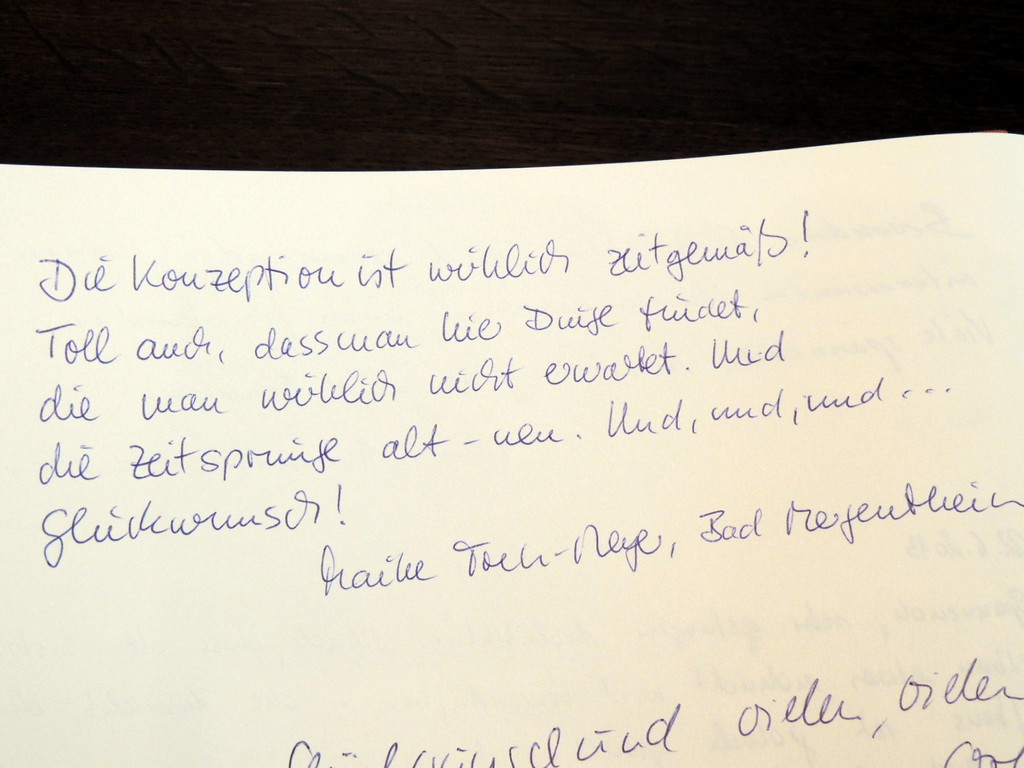 Die Konzeption ist wirklich zeitgemäß!
Toll auch, dass man hier Dinge findet,
die man wirklich nicht erwartet. Und
die Zeitsprünge alt - neu. Und, und, und ...
Glückwunsch!
Maike Bad Mergentheim
Glückwunsch und vielen, vielen